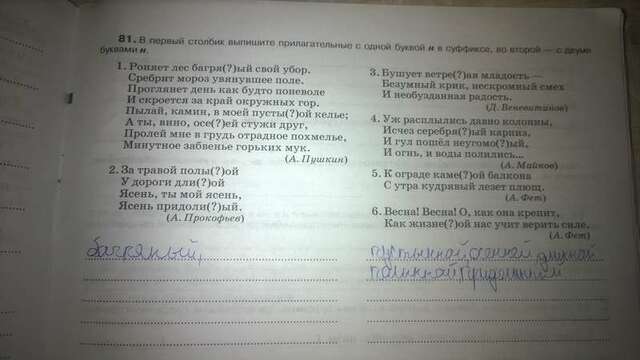 81. В первый столбик выпишите прилагательные с одной буквой н в суффиксе, во второй — с двумя
буквами н.
1. Роняет лес багря(?)ый свой убор.
Сребрит мороз увянувшее поле.
Проглянет день как будто поневоле
И скроется за край окружных гор.
Пылай, камин, в моей пусты(?)ой келье;
А ты, вино, осе(?)ей стужи друг,
Пролей мне в грудь отрадное похмелье,
Минутное забвенье горьких мук.
(А. Пушкин)
2. За травой полы(?)ой
У дороги дли(?)ой
Ясень, ты мой ясень,
Ясень придоли(?)ый.
(А. Прокофьев)
3. Бушует ветре(?)ая младость —
Безумный крик, нескромный смех
И необузданная радость.
(Д. Веневитинов)
4. Уж расплылись давно колонны,
Исчез серебря(?)ый карниз,
И гул пошёл неугомо(?)ый,
И огнь, и воды полились...
(А. Майков)
5. К ограде каме(?)ой балкона
С утра кудрявый лезет плющ.
(А. Фет)
6. Весна! Весна! О, как она крепит,
Как жизне(?)ой нас учит верить силе.
(А. Фет)
багряный,
пустынной, осенней, длинной